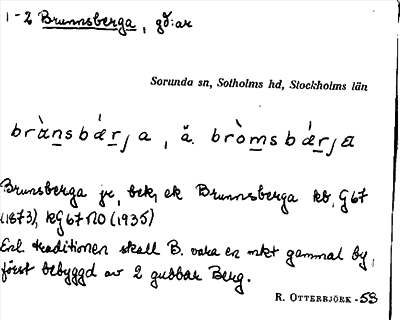 1-2 Brunnsberga, gd:ar
Sorunda sn, Sotholms hd, Stockholms län
brànsbǽrja, ä. bròmsbǽrja
Brunsberga jr, bek, ek Brunnsberga kb, G67
(1873), RG67 NO (1935)
Enl. traditionen skall B. vara en mkt gammal by,
först bebyggd av 2 gubbar Berg.
R. OTTERBJÖRK -53